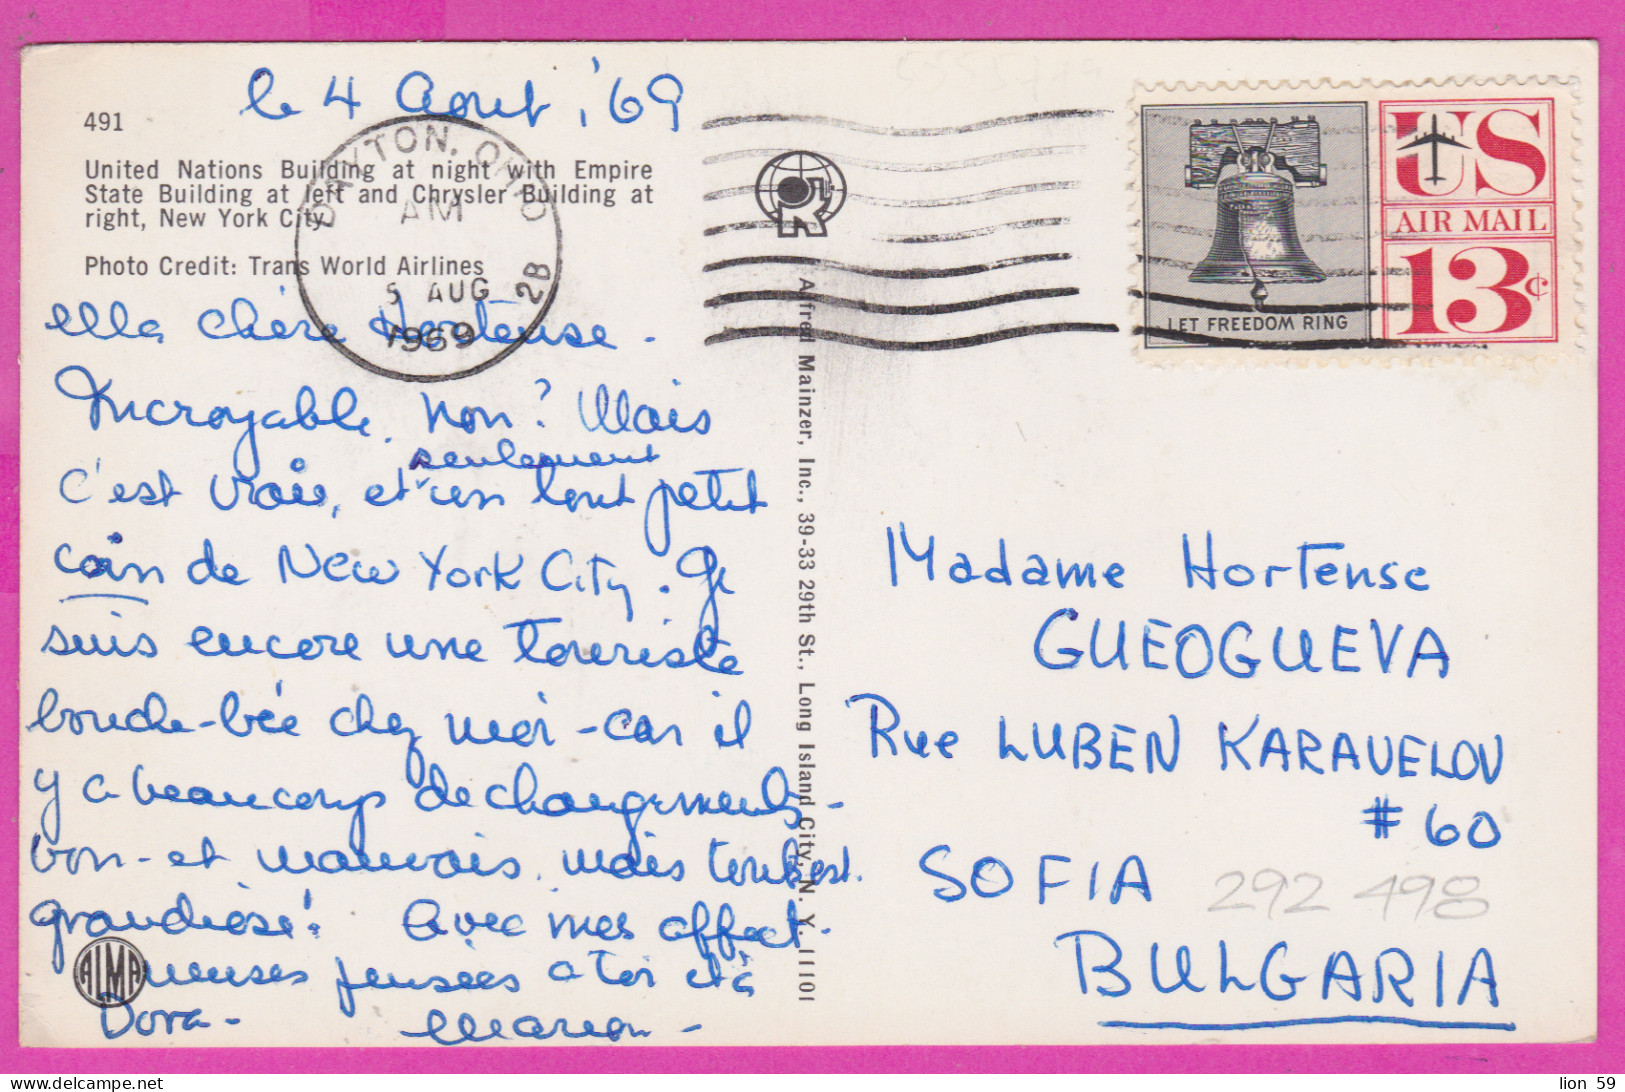 le 4 Aout, '69
491
United Nations Building at night with Empire
State Building at left and Chrysler Building at
right, New York City
Photo Credit: Trans World Airlines
DAYTON, OHIO
AM
5 AUG
1969
2B
Ma chère Hortense.
Incroyable, non? Mais
c'est vrai, et seulement un tout petit
coin de New York City. Je
suis encore une touriste
bouche-bée chez moi - car il
y a beaucoup de changements -
bon - et mauvais, mais tout est
grandiose! Avec mes affect-
ueuses pensées à toi et à
Dora - Marion -
ALMA
Alfred Mainzer, Inc., 39-33 29th St., Long Island City, N. Y. 11101
US
AIR MAIL
13¢
LET FREEDOM RING
Madame Hortense
GUEOGUEVA
Rue LUBEN KARAVELOV
# 60
SOFIA
292 498
BULGARIA
lion 59